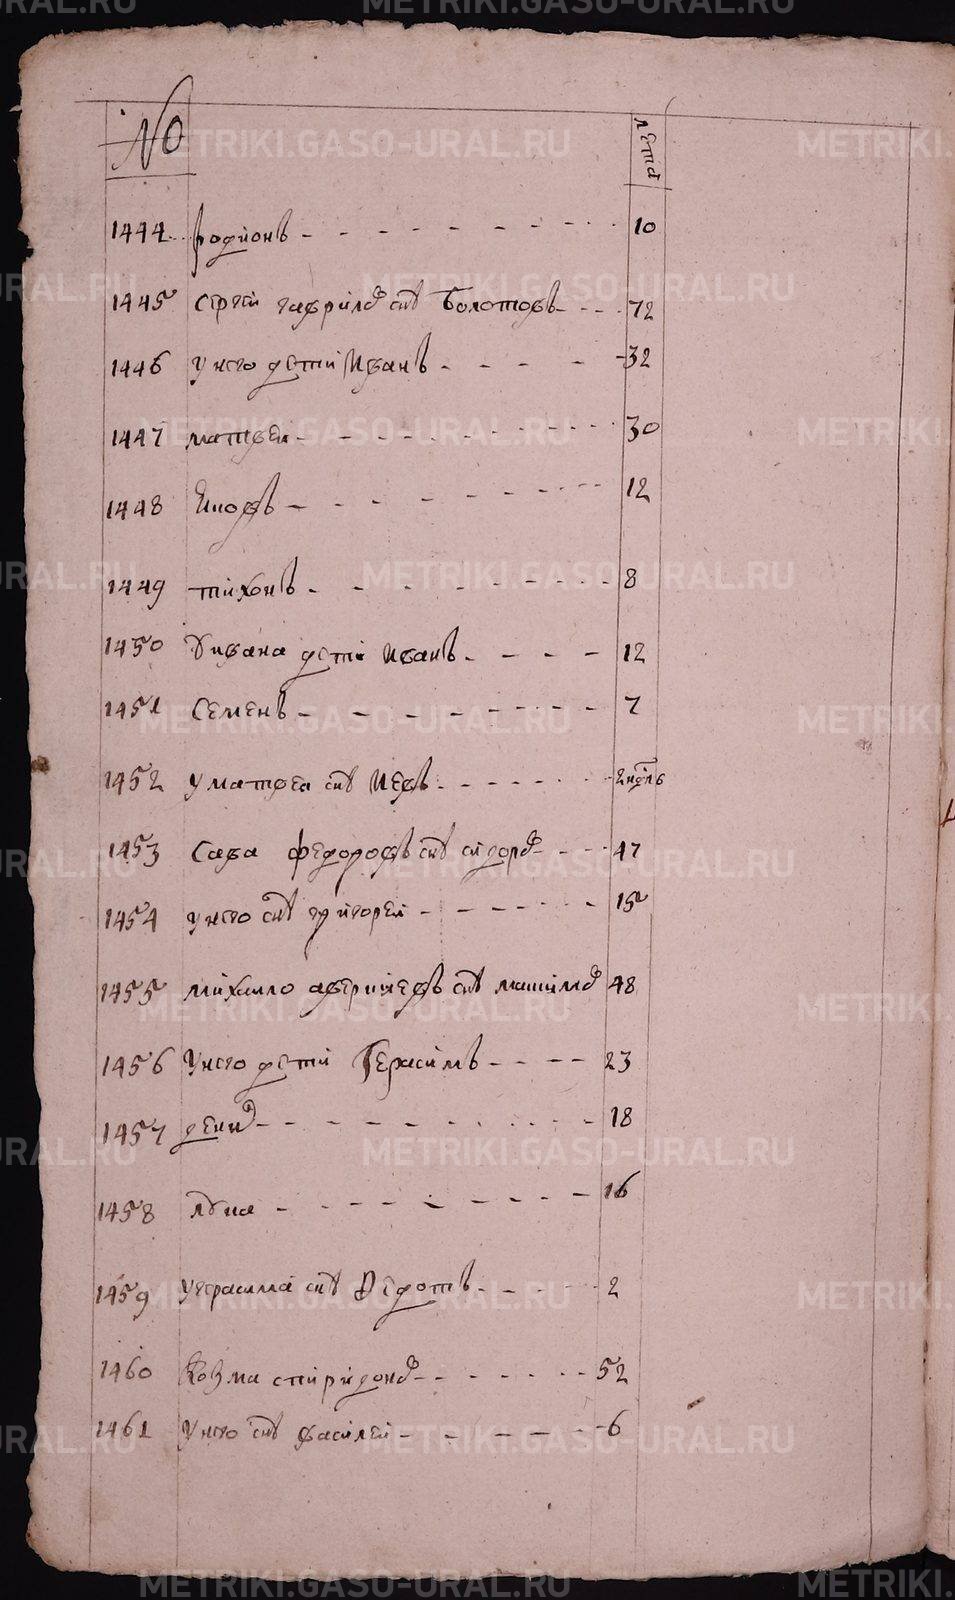 METRIKI.GASO-URAL.RU
№ лета
1444 родионъ 10
1445 сергеи гаврилов снъ Болотовъ 72
1446 у него дети Иванъ 32
1447 матвеи 30
1448 Яковъ 12
1449 тихонъ 8
1450 У ивана дети иванъ 12
1451 Семенъ 7
1452 у матвея снъ 2 недль
1453 Сава федоровъ снъ 47
1454 у него снъ григореи 15
1455 михаило снъ 48
1456 у него дети Герасимъ 23
1457 18
1458 лука 16
1459 у герасима снъ Федотъ 2
1460 Козма спиридонов 52
1461 у него снъ василеи 6